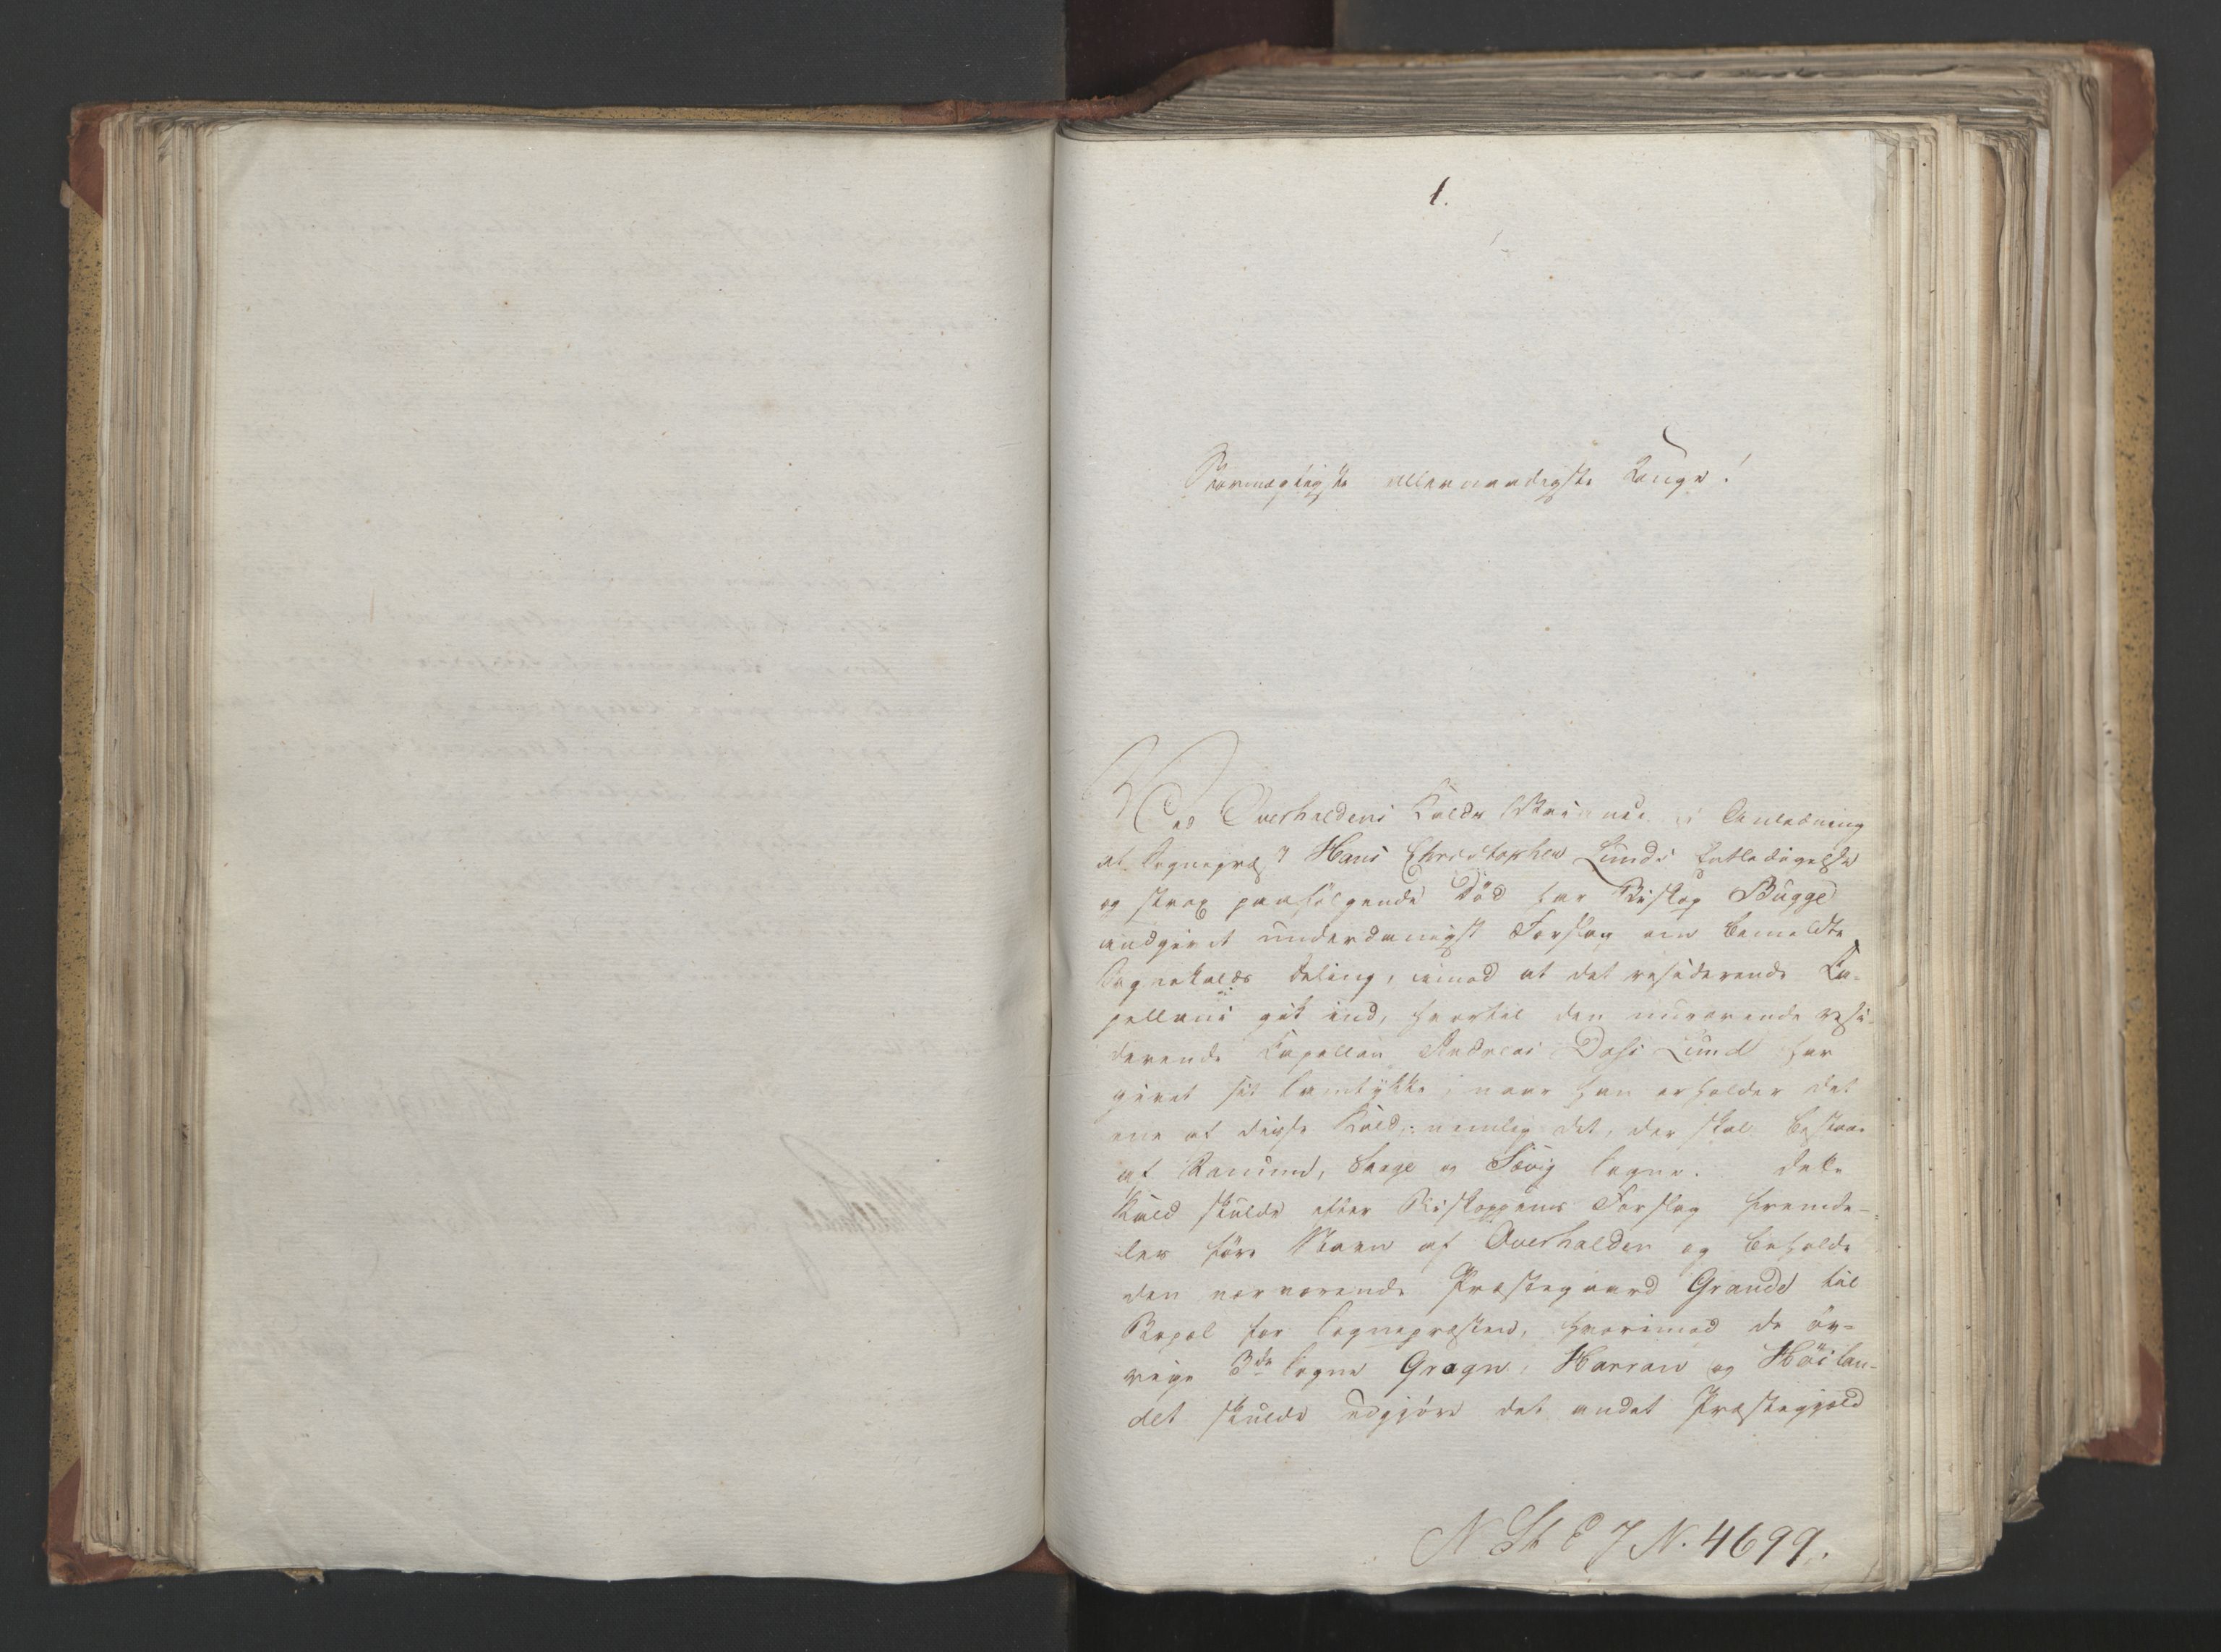 1.
Stormægtigste allernaadigste Konge!
Ved Overhaldens Kalds Vacance i Anledning
af Sognepræst Hans Christopher Lunds Entledigelse
og strax paafølgende Död har Biskop Bugge
indgivet underdanigst Forslag om bemeldte
Sognekalds Deling, imod at det residerende Ca-
pellani gik ind, hvortil den nuværende resi-
derende Capellan Andreas Dass Lund har
givet sit Samtykke, naar han erholder det
ene af disse Kald, nemlig det, der skal bestaae
af Ranum, Skage og Vog Sogne. Dette
Kald skulde efter Biskoppens Forslag fremde-
les føre Navn af Overhalden og beholde
den nærværende Præstegaard Grande til
Bopæl for Sognepræsten, hvorimod de öv-
rige 3de Sogne Grogn, Harran og Höilan-
det skulde udgjøre det andet Præstegjæld
N. 4699.